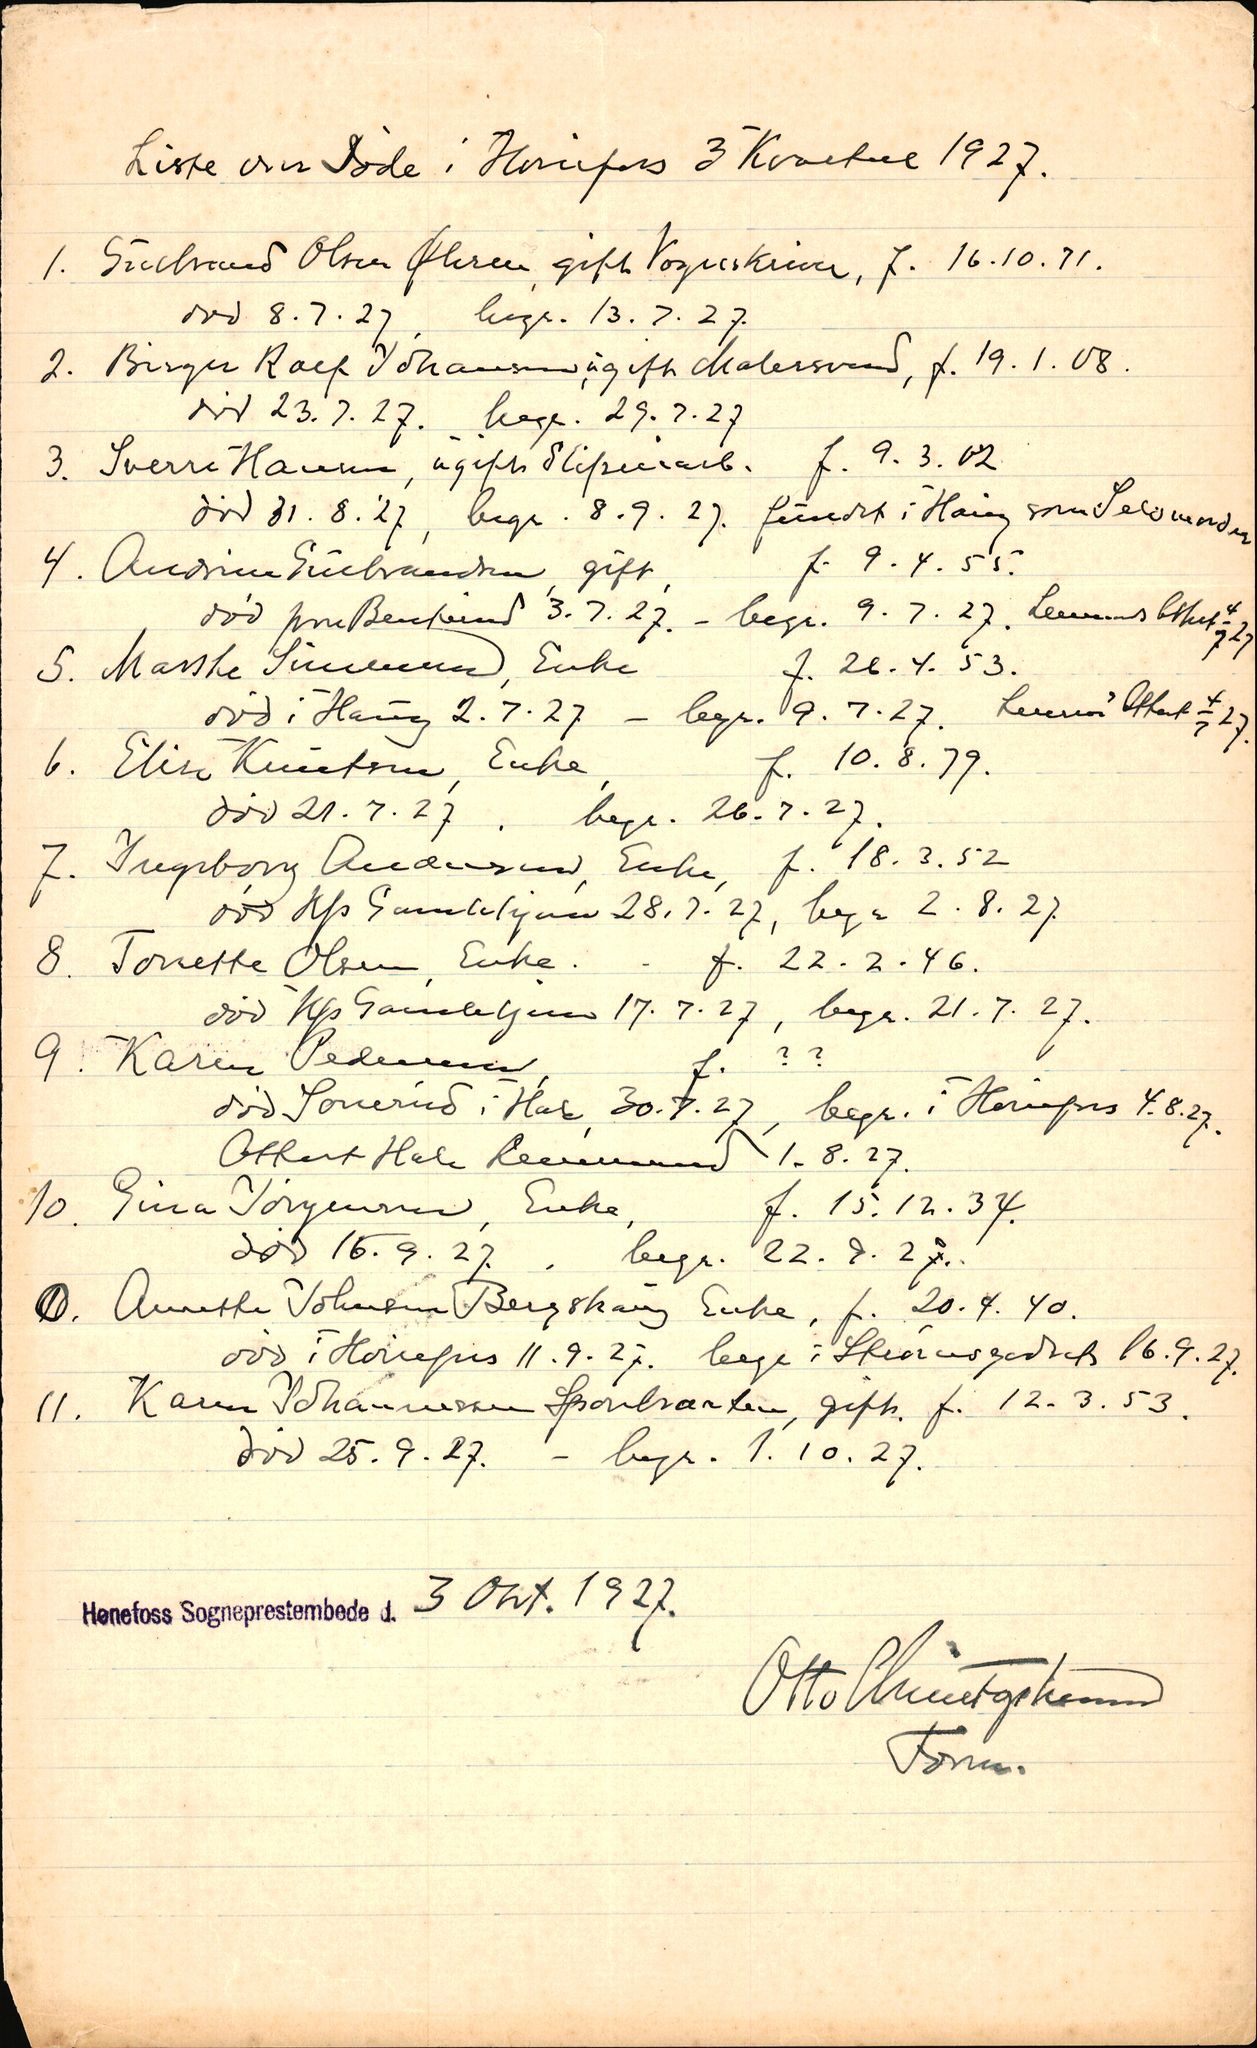 Liste over Døde i Hønefoss 3 Kvartal 1927.
1. Gudbrand Olsen Øhren, gift Vognskriver, f. 16.10.71.
død 8.7.27, begr. 13.7.27.
2. Birger Rolf Johansen, ugift Malersvend, f. 19.1.08.
død 23.7.27. begr. 29.7.27
3. Sverre Hansen, ugift Sliperiarb. f. 9.3.02
død 31.8.27, begr. 8.9.27. fundet i Haug som Selvmorder
4. Andrine Gudbrandsen, gift, f. 9.4.55.
død 3.7.27. - begr. 9.7.27. Attest 4/7 27
5. Marthe Simensen, Enke f. 26.4.53.
død i Haug 2.7.27 - begr. 9.7.27. Attest 4/7 27.
6. Elise Knutsen, Enke, f. 10.8.79.
død 21.7.27. begr. 26.7.27.
7. Ingeborg Andersen, Enke, f. 18.3.52
død Hfs Gamlehjem 28.7.27, begr 2.8.27
8. Tonette Olsen, Enke. - f. 22.2.46.
død Hfs Gamlehjem 17.7.27, begr. 21.7.27.
9. Karen Pedersen, f. ??
død i Hole, 30.7.27, begr. i Hønefoss 4.8.27.
Attest Hole Lensmand 1.8.27.
10. Gina Jørgensen, Enke, f. 15.12.34.
død 16.9.27. begr. 22.9.27.
0. Annette Johnsen Bergskaug Enke, f. 20.4.40.
død i Hønefoss 11.9.27. begr i Strømsgodset 16.9.27.
11. Karen Johannessen gift. f. 12.3.53.
død 25.9.27. - begr. 1.10.27.
Hønefoss Sogneprestembede d. 3 Okt. 1927.
Otto